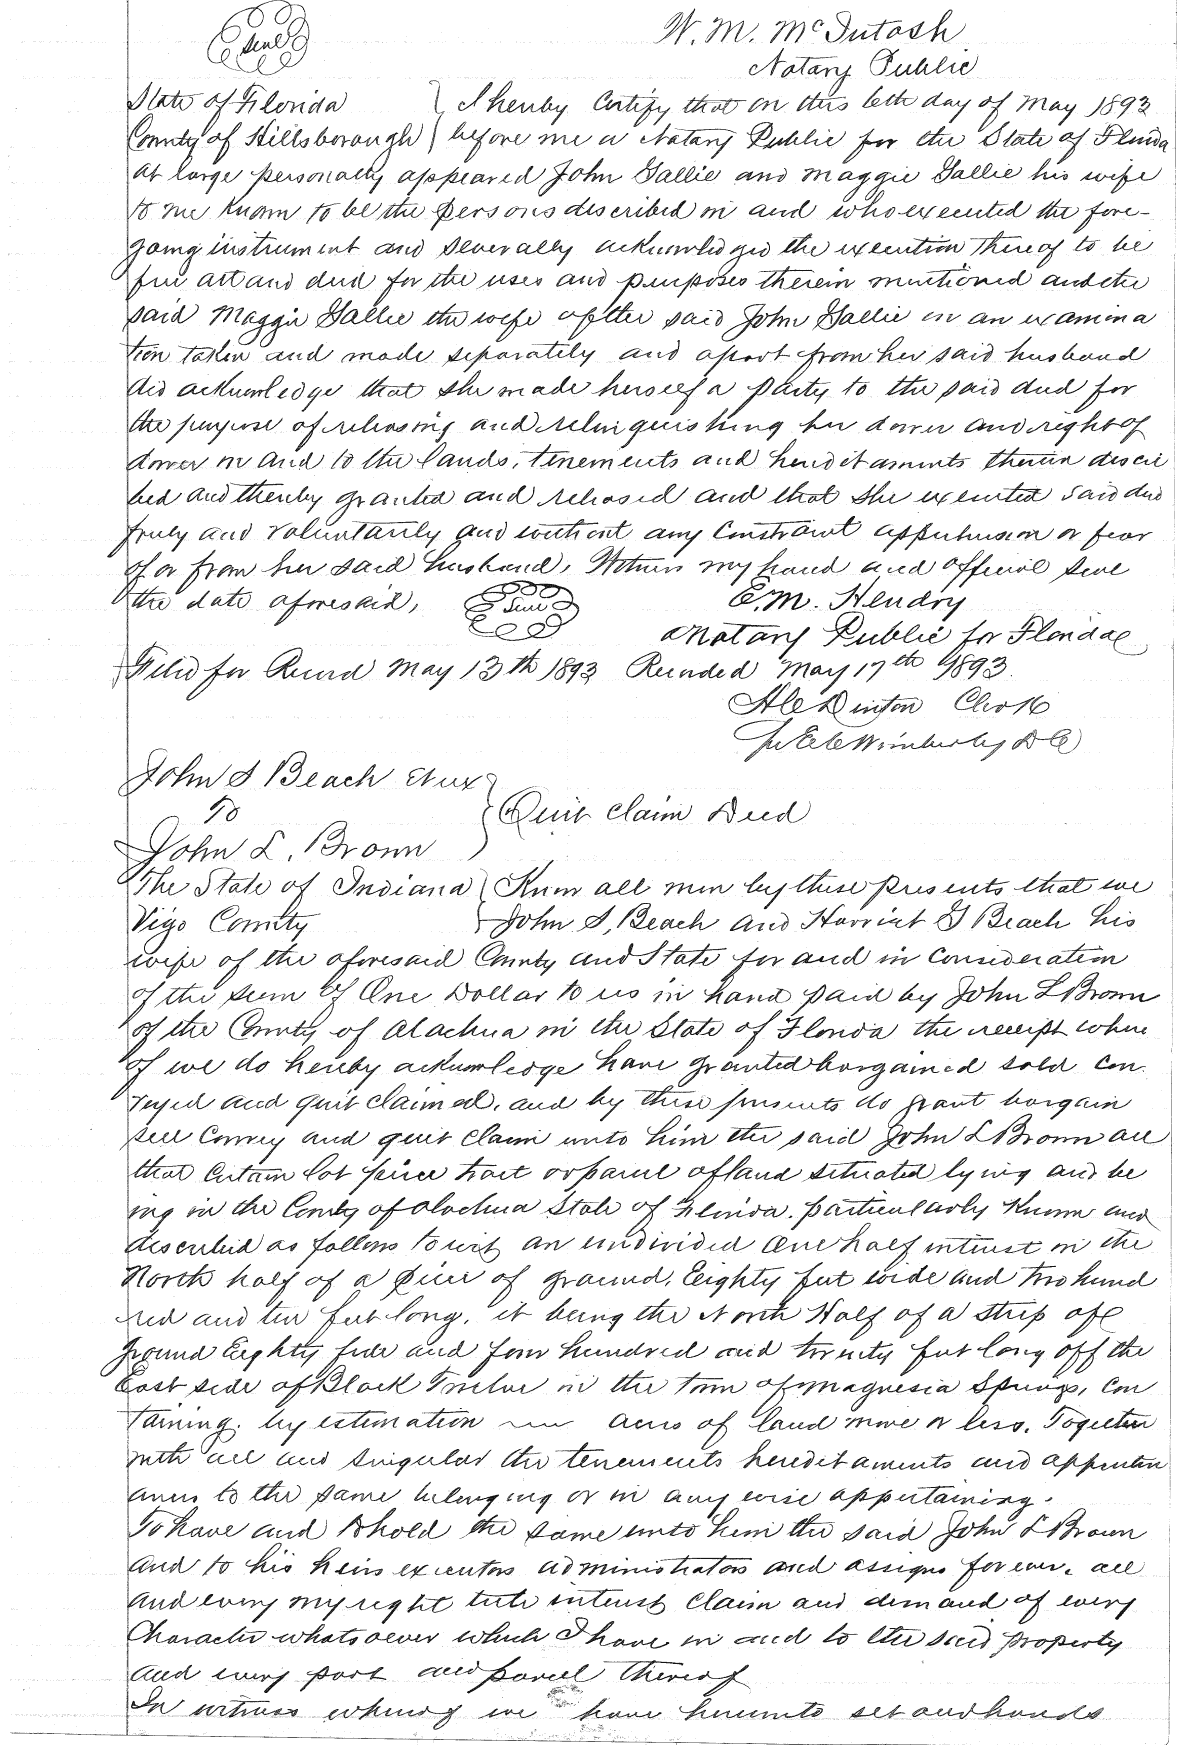 Seal
W. M. McIntosh
Notary Public
State of Florida } I hereby Certify that on this 6th day of May 1893
County of Hillsborough } before me a Notary Public for the State of Florida
at large personally appeared John Gallie and Maggie Gallie his wife
to me known to be the persons described in and who executed the fore-
going instrument and severally acknowledged the execution thereof to be
free act and deed for the uses and purposes therein mentioned and the
said Maggie Gallie the wife of the said John Gallie on an examina
tion taken and made separately and apart from her said husband
did acknowledge that she made herself a party to the said deed for
the purpose of releasing and relinquishing her dower and right of
dower in and to the lands, tenements and hereditaments therein descri
bed and thereby granted and released and that she executed said deed
freely and voluntarily and without any Constraint apprehension or fear
of or from her said husband, Witness my hand and official seal
the date aforesaid, Seal E. M. Hendry
Notary Public for Florida
Filed for Record May 13th 1893 Recorded May 17th 1893.
Denton Clerk
Wimberly D C
John S Beach et ux
To } Quit Claim Deed
John L. Brown
The State of Indiana } Know all men by these presents that we
Vigo County } John S. Beach and Harriet G Beach his
wife of the aforesaid County and State for and in consideration
of the sum of One Dollar to us in hand paid by John L Brown
of the County of Alachua in the State of Florida the receipt where
of we do hereby acknowledge have granted bargained sold con
veyed and quit claimed, and by these presents do grant bargain
sell Convey and quit claim unto him the said John L Brown all
that certain lot piece tract or parcel of land situated lying and be
ing in the County of Alachua State of Florida. particularly known and
described as follows to wit an undivided One half interest in the
North half of a piece of ground, Eighty feet wide and two hund
red and ten feet long, it being the North Half of a strip of
ground Eighty feet and four hundred and twenty feet long off the
East side of Block Twelve in the town of Magnesia Springs, Con
taining, by estimation acres of land more or less. Together
with all and singular the tenements hereditaments and appurten
ances to the same belonging or in any wise appertaining.
To have and to hold the same unto him the said John L Brown
and to his heirs executors administrators and assigns forever, all
and every my right title interest Claim and demand of every
Character whatsoever which I have in and to the said property
and every part and parcel thereof
In witness whereof we have hereunto set our hands